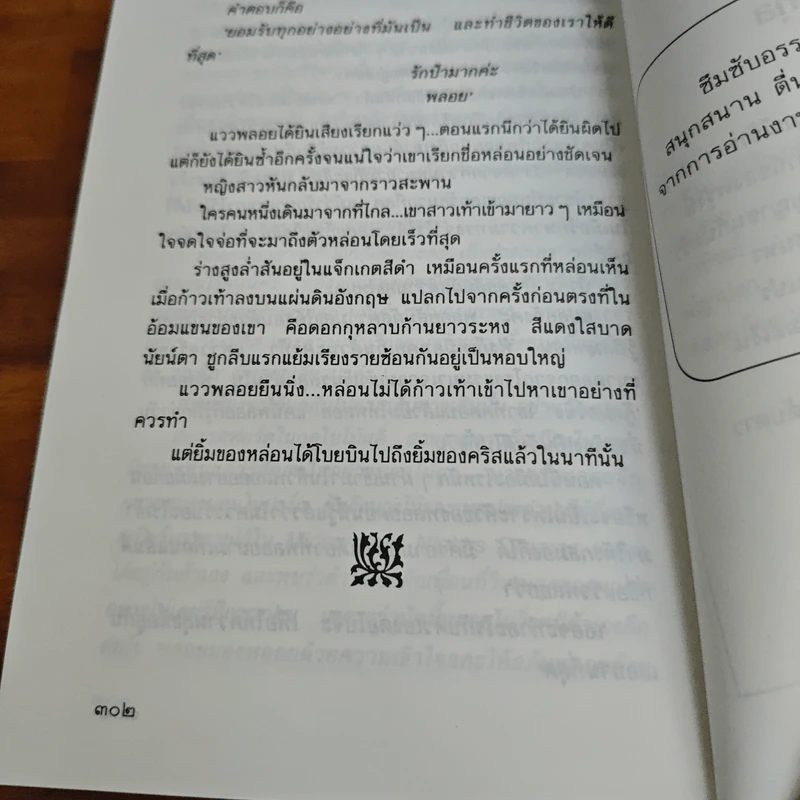 คำตอบก็คือ
'ยอมรับทุกอย่างอย่างที่มันเป็น และทำชีวิตของเราให้ดี
ที่สุด'
รักป้ามากค่ะ
พลอย'
แววพลอยได้ยินเสียงเรียกแว่ว ๆ...ตอนแรกนึกว่าได้ยินผิดไป
แต่ก็ยังได้ยินซ้ำอีกครั้งจนแน่ใจว่าเขาเรียกชื่อหล่อนอย่างชัดเจน
หญิงสาวหันกลับมาจากราวสะพาน
ใครคนหนึ่งเดินมาจากที่ไกล...เขาสาวเท้าเข้ามายาว ๆ เหมือน
ใจจดใจจ่อที่จะมาถึงตัวหล่อนโดยเร็วที่สุด
ร่างสูงล่ำสันอยู่ในแจ็กเกตสีดำ เหมือนครั้งแรกที่หล่อนเห็น
เมื่อก้าวเท้าลงบนแผ่นดินอังกฤษ แปลกไปจากครั้งก่อนตรงที่ใน
อ้อมแขนของเขา คือดอกกุหลาบก้านยาวระหง สีแดงใสบาด
นัยน์ตา ชูกลีบแรกแย้มเรียงรายซ้อนกันอยู่เป็นหอบใหญ่
แววพลอยยืนนิ่ง...หล่อนไม่ได้ก้าวเท้าเข้าไปหาเขาอย่างที่
ควรทำ
แต่ยิ้มของหล่อนได้โบยบินไปถึงยิ้มของคริสแล้วในนาทีนั้น
๓๐๒
ซึมซับอรร
สนุกสนาน ตื่น
จากการอ่านงาน